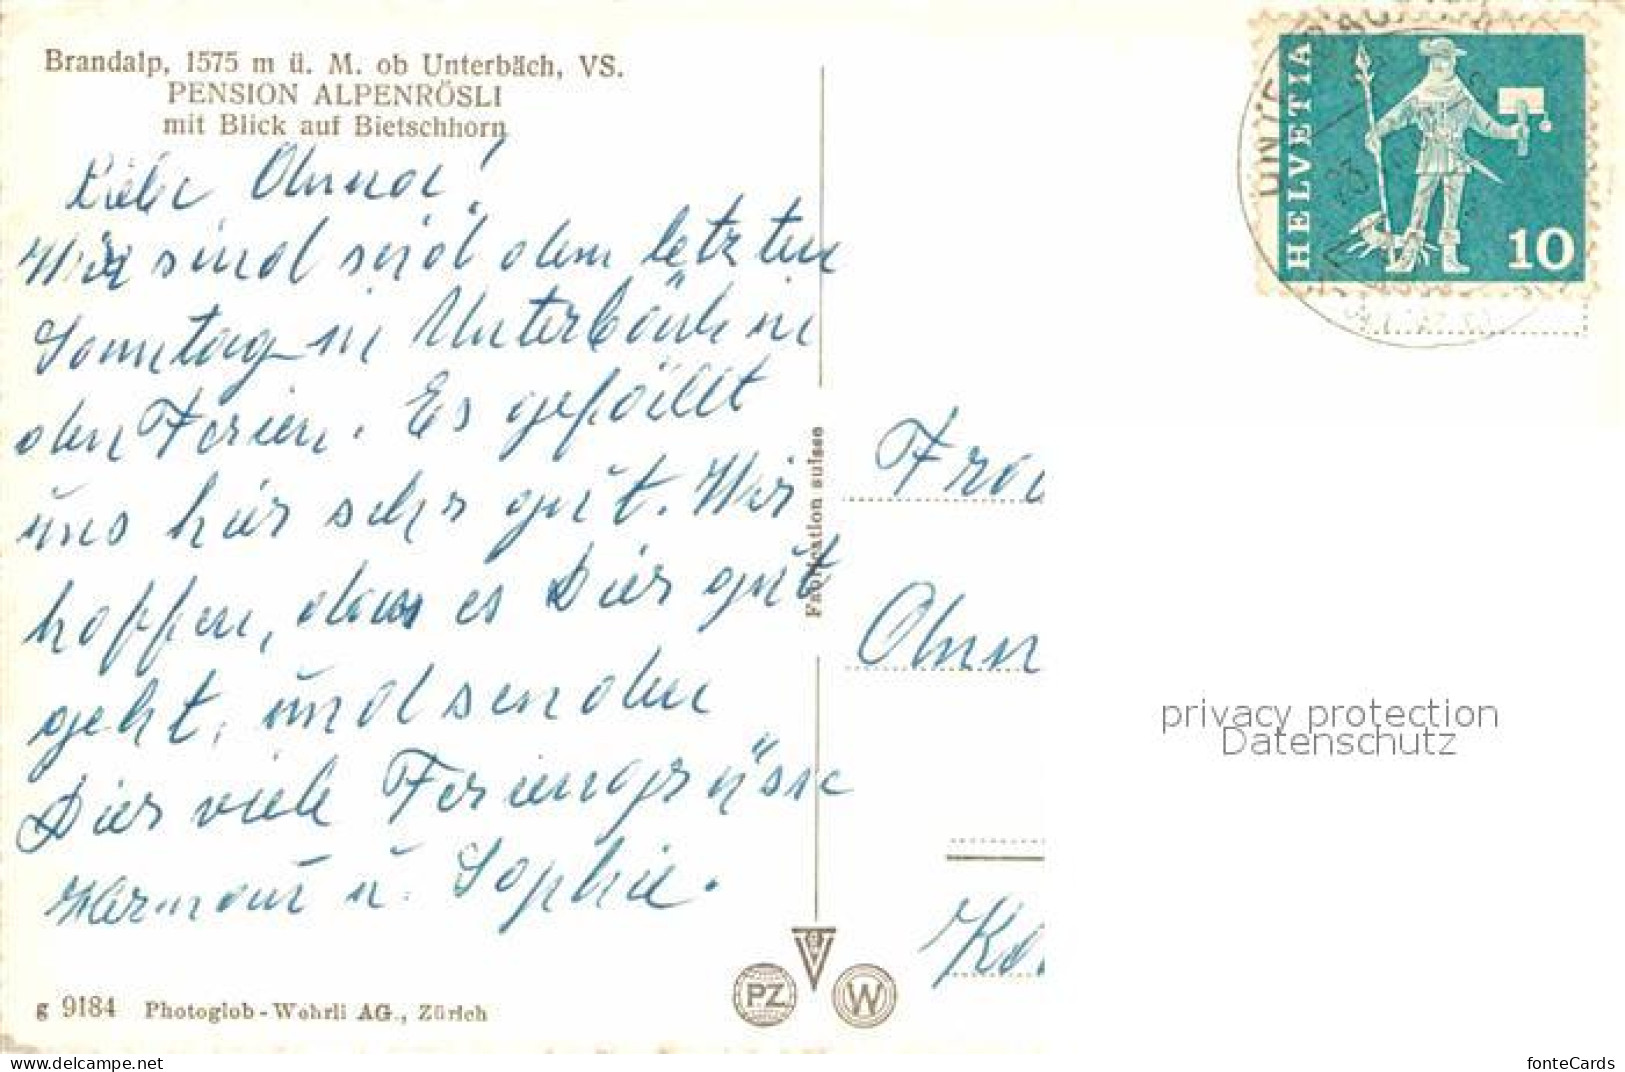 Brandalp, 1575 m ü. M. ob Unterbäch, VS.
PENSION ALPENRÖSLI
mit Blick auf Bietschhorn
Liebe Anna!
Wir sind seid dem letzten
Sonntag in Unterbäch in
den Ferien. Es gefällt
uns hier sehr gut. Wir
hoffen, dass es Dier gut
geht, und senden
Dier viele Feriengrüsse
Hermann u. Sophie.
g 9184 Photoglob-Wehrli AG., Zürich
Fabrication suisse
PZ
W
HELVETIA
10
Frau
Ann
Ka
privacy protection
Datenschutz
fonteCards
My-postcard.ch